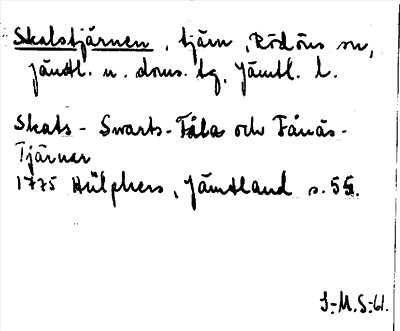 Skalstjärnen, tjärn, Rödöns sn,
Jämtl. n. doms. tg, Jämtl. l.
Skals- Swarts- Fåla och Fånäs-
Tjärnar
1775 Hülphers, Jämtland s. 55.
I-M.S-61.